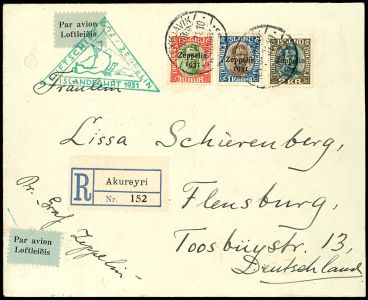 Par avion
Loftleiðis
ZEPPELIN
ISLANDFAHRT 1931
REYKJAVIK
Zeppelin
1931
30 AUR
Zeppelin
1931
ISLAND
Zeppelin
1931
2 KR
Fräulein
Lissa Schierenberg,
R
Akureyri
Nr. 152
Flensburg,
Toosbüystr. 13,
Deutschland
Pr. Graf Zeppelin
Par avion
Loftleiðis